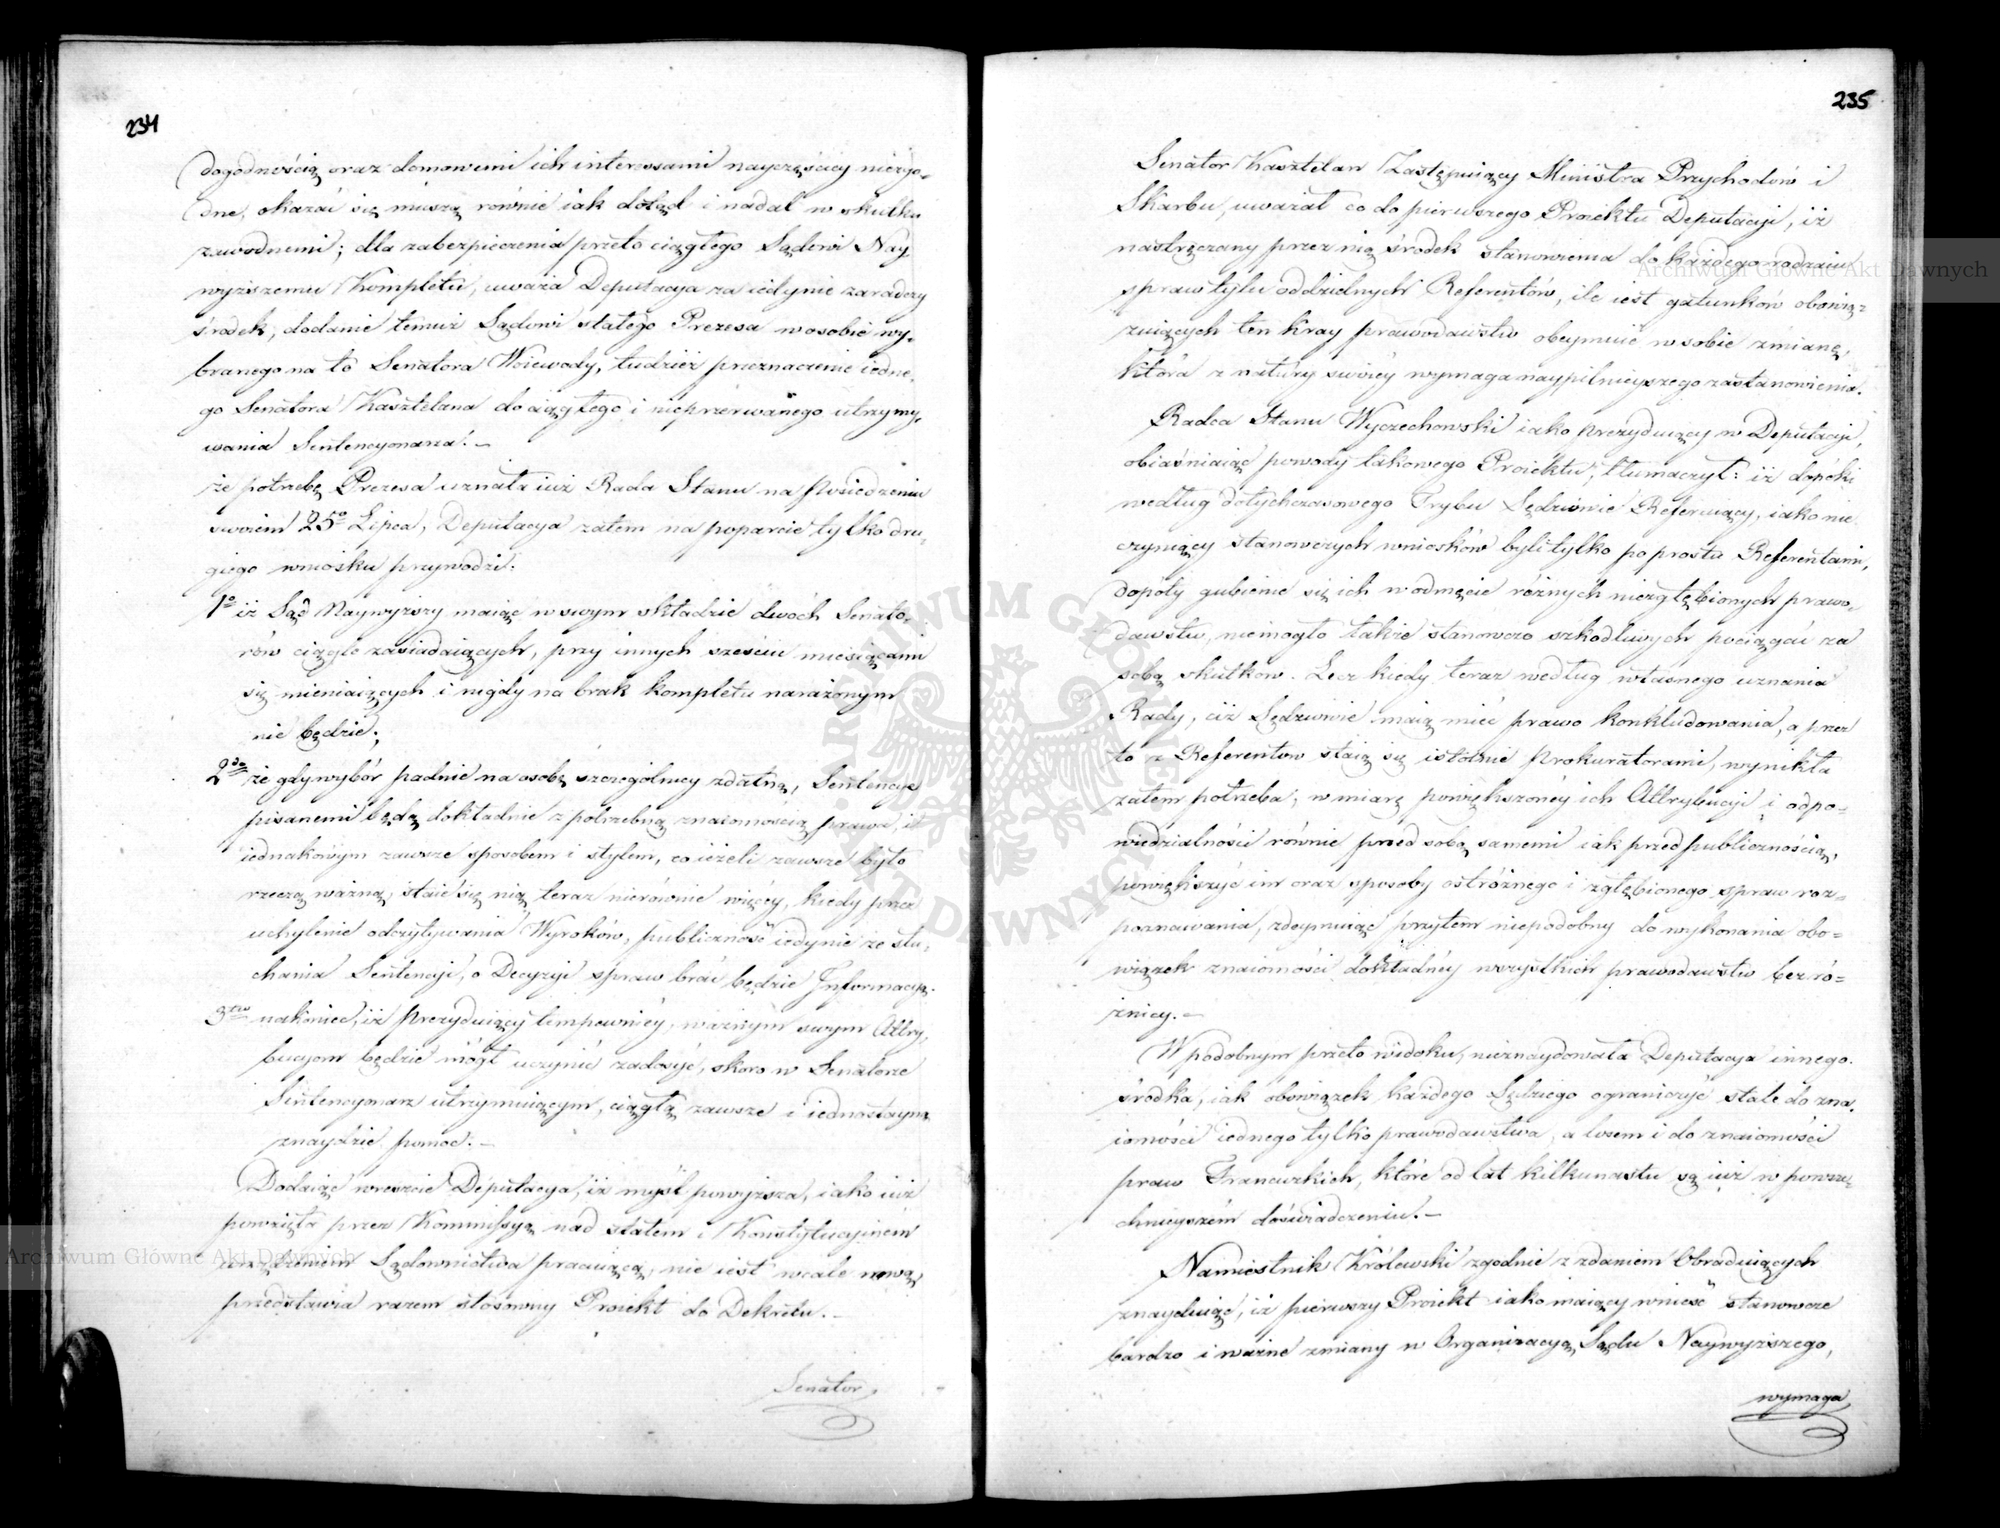 234
dogodnością oraz domowemi ich interessami nayczęściey niezgo-
dne, okazać się muszą równie iak dotąd i nadal w skutku
zawodnemi; dla zabezpieczenia przeto ciągłego Sądowi Nay
wyższemu Kompletu, uważa Deputacya za iedynie zaradczy
środek, dodanie temuż Sądowi stałego Prezesa w osobie wy-
branego na to Senatora Woiewody, tudzież przeznaczenie iedne-
go Senatora Kasztelana do ciągłego i nieprzerwanego utrzymy-
wania Sentencyonarza. —
że potrzebę Prezesa uznała iuż Rada Stanu na Posiedzeniu
swoiem 25º Lipca, Deputacya zatem na poparcie tylko dru-
giego wniosku przywodzi:
1º iż Sąd Naywyższy maiąc w swym składzie dwóch Senato-
rów ciągle zasiadaiących, przy innych sześciu miesiącami
się mieniaiących i nigdy na brak kompletu narażonym
nie będzie;
2do że gdy wybór padnie na osobę szczególniey zdatną, Sentencye
pisanemi będą dokładnie z potrzebną znaiomością prawa, i
iednakowym zawsze sposobem i stylem, co ieżeli zawsze było
rzeczą ważną, staie się nią teraz nierównie więcey, kiedy przez
uchylenie odczytywania Wyroków, publiczność iedynie ze słu-
chania Sentencyi, o Decyzyi spraw brać będzie Informacyą.
3tio nakoniec, iż Prezyduiący tem pewniey, ważnym swym Attry-
bucyom będzie mógł uczynić zadosyć, skoro w Senatorze
Sentencyonarz utrzymuiącym, ciągłą zawsze i iednostayną
znaydzie pomoc. —
Dodaiąc wreszcie Deputacya, iż myśl powyższa, iako iuż
powzięta przez Kommissyą nad stałem i Konstytucyinem
urządzeniem Sądownictwa pracuiącą, nie iest wcale nową,
przedstawia razem stosowny Proiekt do Dekretu. —
Senator
235
Senator Kasztelan Zastępuiący Ministra Przychodów i
Skarbu, uważał co do pierwszego Proiektu Deputacyi, iż
nastręczany przez nią środek stanowienia do każdego rodzaiu
spraw tylu oddzielnych Referentów, ile iest gatunków obowią-
zuiących ten kray prawodawstw obeymuie w sobie zmianę,
która z natury swoiey wymaga naypilnieyszego zastanowienia.
Radca Stanu Wyczechowski iako prezyduiący w Deputacyi,
obiaśniaiąc powody takowego Proiektu, tłumaczył: iż dopóki
według dotychczasowego Trybu Sędziowie Referuiący, iako nie
czyniący stanowczych wniosków byli tylko po prostu Referentami,
dopóty gubienie się ich w odmęcie różnych niezgłębionych prawo-
dawstw, niemogło także stanowczo szkodliwych pociągać za
sobą skutków. Lecz kiedy teraz według własnego uznania
Rady, ciż Sędziowie maią mieć prawo konkludowania, a przez
to z Referentow staią się istotnie Prokuratorami, wynikła
zatem potrzeba, w miarę powiększoney ich Attrybucyi i odpo-
wiedzialności równie przed sobą samemi iak przed publicznością,
powiększyć im oraz sposoby ostróżnego i zgłębionego spraw roz-
poznawania, zdeymuiąc przytem niepodobny do wykonania obo-
wiązek znaiomości dokładney wszystkich prawodawstw bez ró-
żnicy. —
W podobnym przeto widoku, nieznaydowała Deputacya innego
środka, iak obowiązek każdego Sędziego ograniczyć stale do zna-
iomości iednego tylko prawodawstwa, a losem i do znaiomości
praw Francuzkich, które od lat kilkunastu są iuż w powsze-
chnieyszém doświadczeniu. —
Namiestnik Królewski zgodnie z zdaniem Obraduiących
znayduiąc, iż pierwszy Proiekt iako maiący wnieść stanowcze
bardzo i ważne zmiany w Organizacyą Sądu Naywyższego,
wymaga
ARCHIWUM GŁÓWNE AKT DAWNYCH
Archiwum Główne Akt Dawnych
Archiwum Główne Akt Dawnych